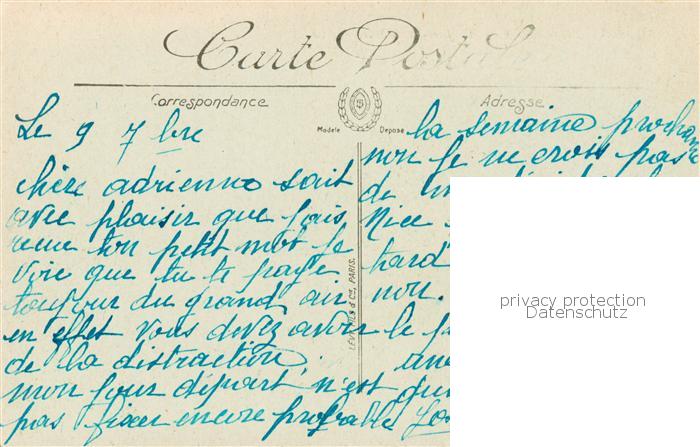 Carte Postale
Correspondance
Adresse
Modèle Déposé
LÉVY FILS & Cie, PARIS.
Le 9 7 bre
chère adrienne sait
avec plaisir que jais
recue ton petit mot je
voie que tu te paye
toujour du grand air
en effet vous devez avoir
de la distraction,
mon jour départ n'est
pas fixer encore probable
la semaine prochain
non je ne crois pas
de
Nice
hard
non.
le
privacy protection
Datenschutz